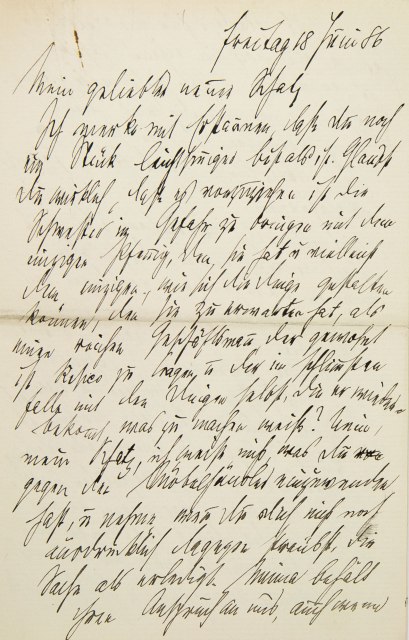 Freitag 18 Juni 86
Mein geliebter neuer Schatz
Ich merke mit Erstaunen, daß du noch
ein Stück leichtsinniger bist als ich. Glaubst
du wirklich, daß es vorzuziehen ist die
Schwester in Gefahr zu bringen mit dem
einzigen Pfennig, den sie hat u vielleicht
dem einzigen, wie sich die Dinge gestalten
können, den sie zu erwarten hat, als
einen reichen Geschäftsmann der gewohnt
ist Risico zu tragen, u der im schlimmsten
Falle mit den Dingen selbst, die er wieder-
bekommt, was zu machen weiß? Nein,
mein Schatz, ich weiß nicht, was du
gegen den Möbelhändler einzuwenden
hast, u nehme wenn du dich nicht noch
ausdrücklich dagegen sträubst, die
Sache als erledigt. Minna behält
ihren Anspruch an uns, auch wenn